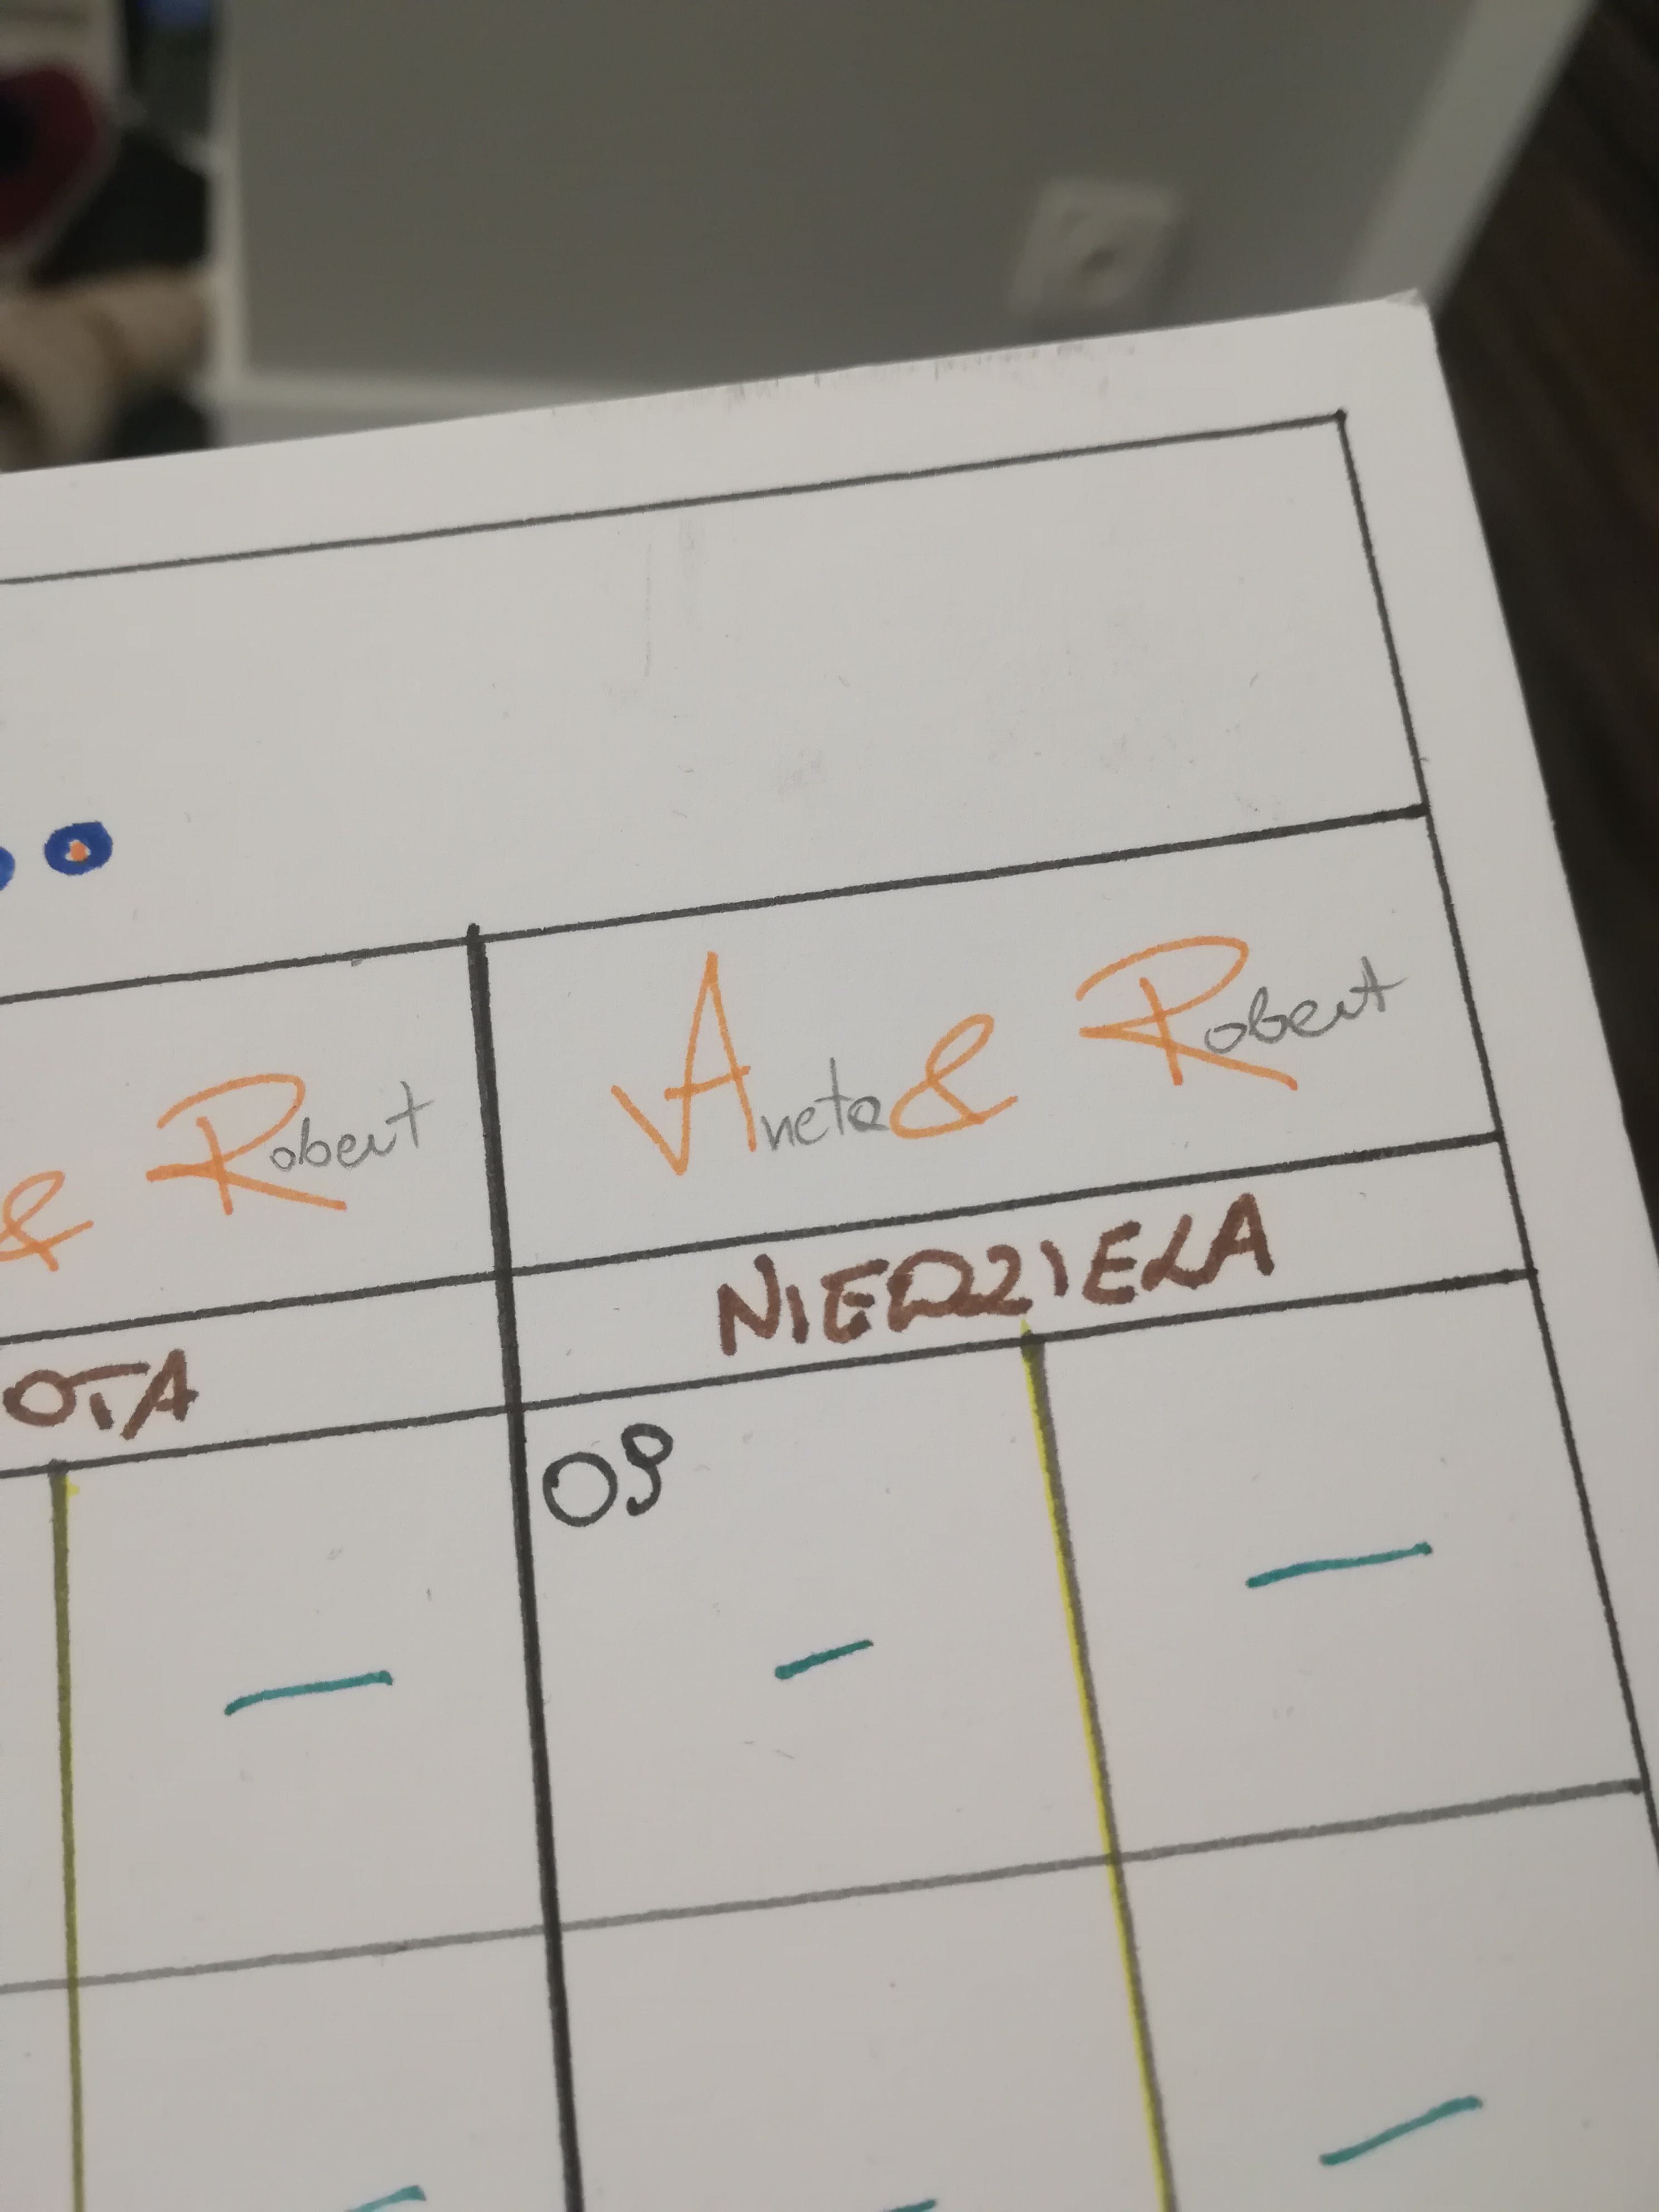 & Robert
Aneta & Robert
OTA
NIEDZIELA
09